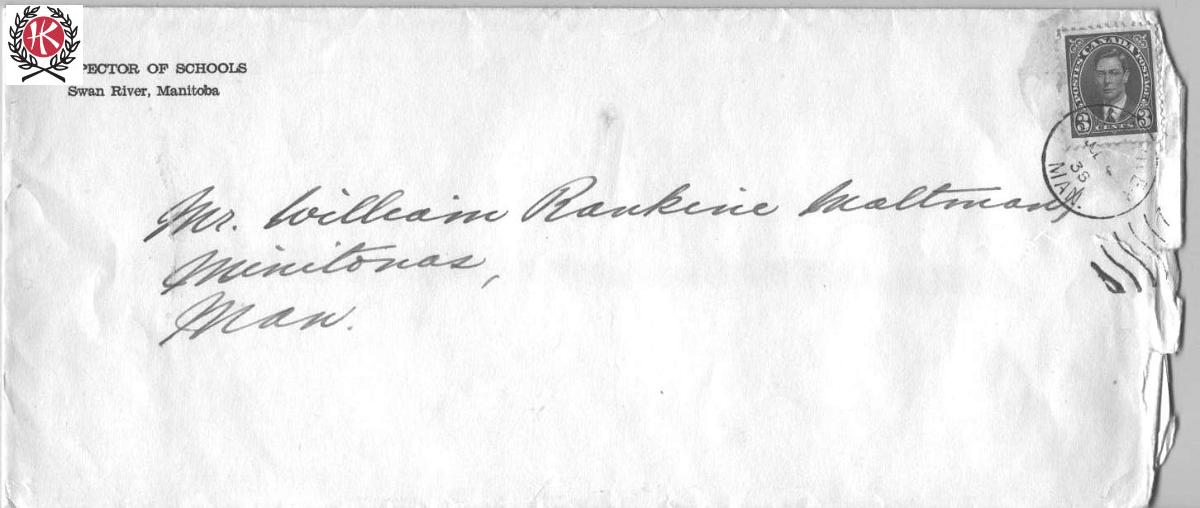 HK
PECTOR OF SCHOOLS
Swan River, Manitoba
POSTES CANADA POSTAGE
3 CENTS 3
38
MAN.
Mr. William Rankine Maltman,
Minitonas,
Man.